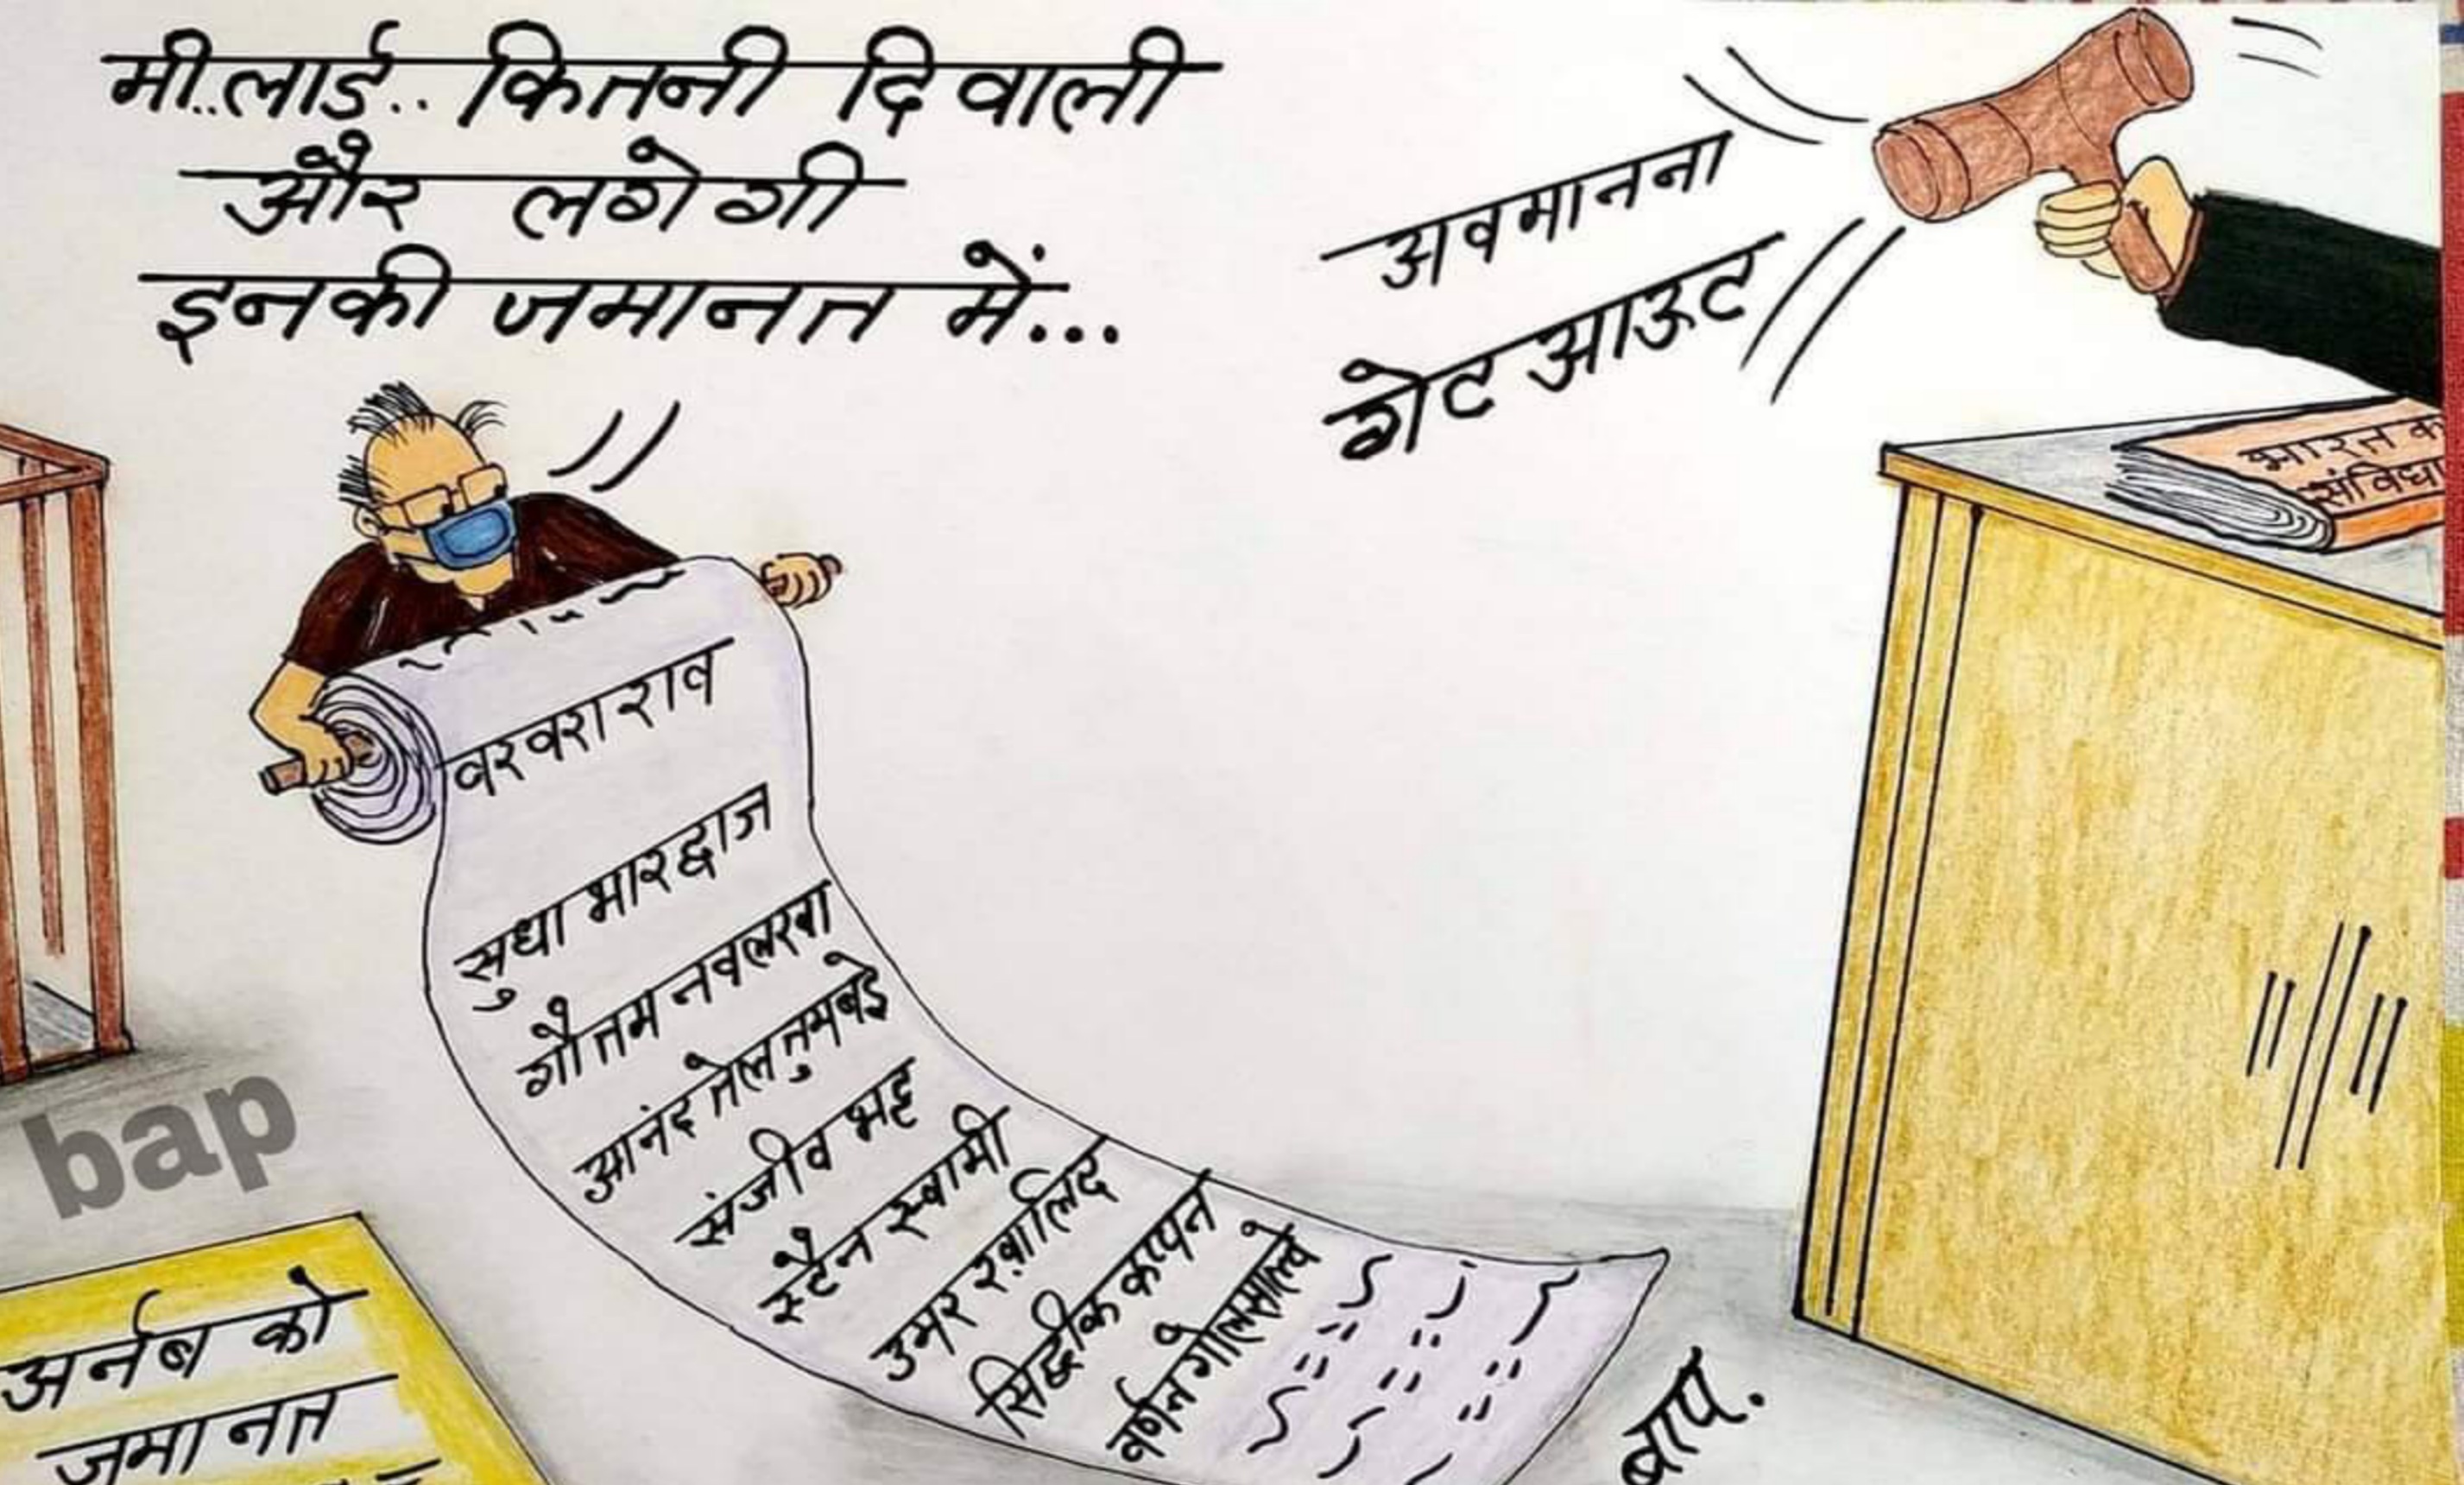 मी..लार्ड.. कितनी दिवाली
और लगेगी
इनकी जमानत में...
अवमानना
गेट आऊट
भारत क
संविधा
वरवरा राव
सुधा भारद्वाज
गौतम नवलखा
आनंद तेलतुमबडे
संजीव भट्ट
स्टैन स्वामी
उमर ख़ालिद
सिद्दीक कप्पन
वर्णन गोलसाल्वे
bap
अर्नब को
जमानत
बाप.